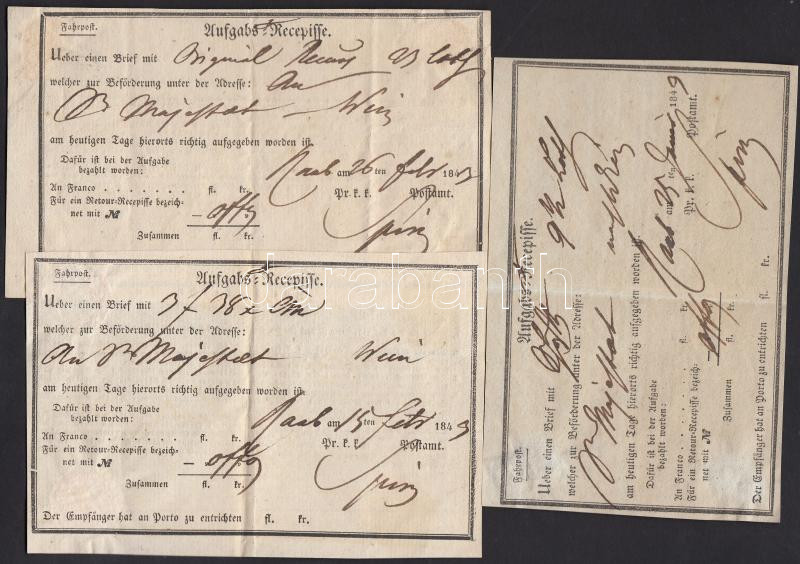 Fahrpost.
Aufgabs-Recepisse.
Ueber einen Brief mit Original Recurs 23 loth
welcher zur Beförderung unter der Adresse: An
Sr Majestaet – Wien
am heutigen Tage hierorts richtig aufgegeben worden ist.
Dafür ist bei der Aufgabe
bezahlt worden:
Raab am 26 ten Febr 184
An Franco . . . . . . . fl. kr.
Pr. k. k. Postamt.
Für ein Retour-Recepisse bezeich-
net mit №
Zusammen fl. kr.
Fahrpost.
Aufgabs-Recepisse.
Ueber einen Brief mit 3 f 38 x
welcher zur Beförderung unter der Adresse:
An Sr Majestaet Wien
am heutigen Tage hierorts richtig aufgegeben worden ist.
Dafür ist bei der Aufgabe
bezahlt worden:
Raab am 15 ten Febr 184
An Franco . . . . . . . fl. kr.
Pr. k. k. Postamt.
Für ein Retour-Recepisse bezeich-
net mit №
Zusammen fl. kr.
Der Empfänger hat an Porto zu entrichten fl. kr.
Fahrpost.
Aufgabs-Recepisse.
Ueber einen Brief mit 9 loth
welcher zur Beförderung unter der Adresse:
Sr Majestaet
am heutigen Tage hierorts richtig aufgegeben worden ist.
Dafür ist bei der Aufgabe
bezahlt worden:
Raab am 25 ten 1849
An Franco . . . . . . . fl. kr.
Pr. k. k. Postamt.
Für ein Retour-Recepisse bezeich-
net mit №
Zusammen fl. kr.
Der Empfänger hat an Porto zu entrichten fl. kr.
darabanth